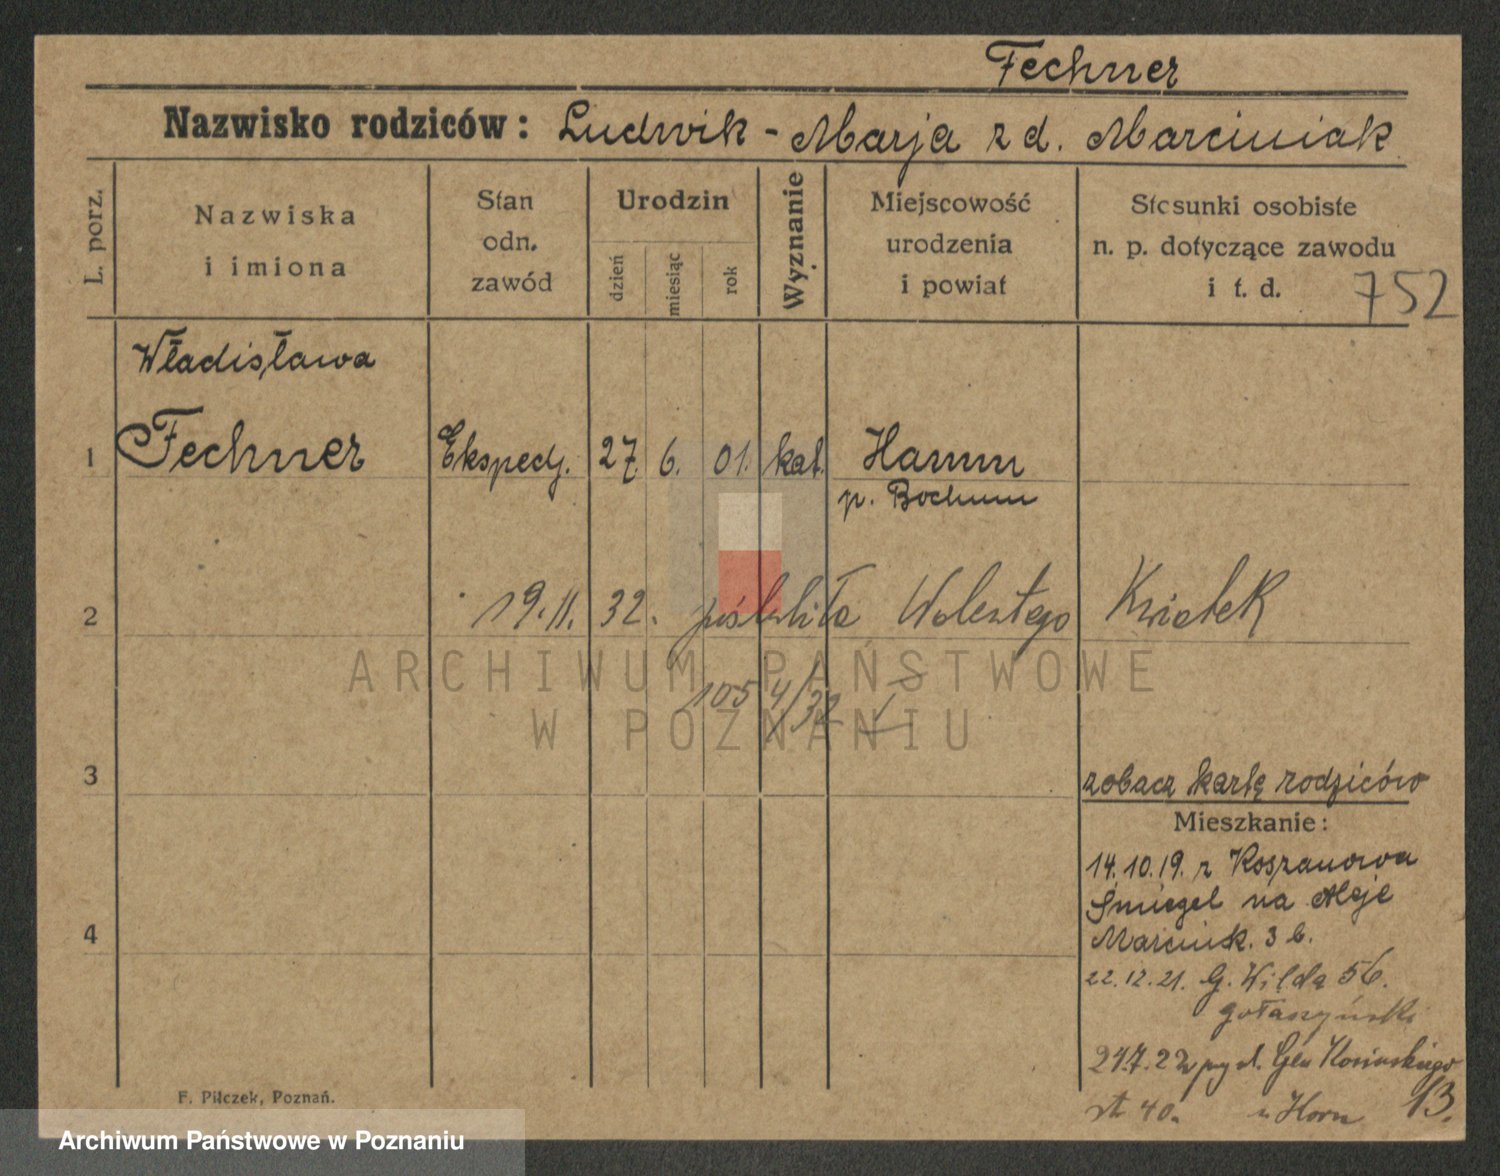 Fechner
Nazwisko rodziców: Ludwik - Marja z d. Marciniak
L. porz.
Nazwiska
i imiona
Stan
odn.
zawód
Urodzin
dzień
miesiąc
rok
Wyznanie
Miejscowość
urodzenia
i powiat
Stosunki osobiste
n. p. dotyczące zawodu
i t. d.
752
Władisława
1 Fechner Ekspedj. 27. 6. 01. kat. Hamm
p. Bochum
2 19.11. 32. poślubiła Kwiatek
105 4/32
ARCHIWUM PAŃSTWOWE
W POZNANIU
3
zobacz kartę rodziców
Mieszkanie:
14.10.19. z Koszanowa
Śmiegel na Aleje
4 Marcink. 3 b.
22.12.21. G. Wilda 56.
Gołaszyński
24.7.22 Gen Kosinskiego
13.
40. u Horn
F. Pilczek, Poznań.
Archiwum Państwowe w Poznaniu